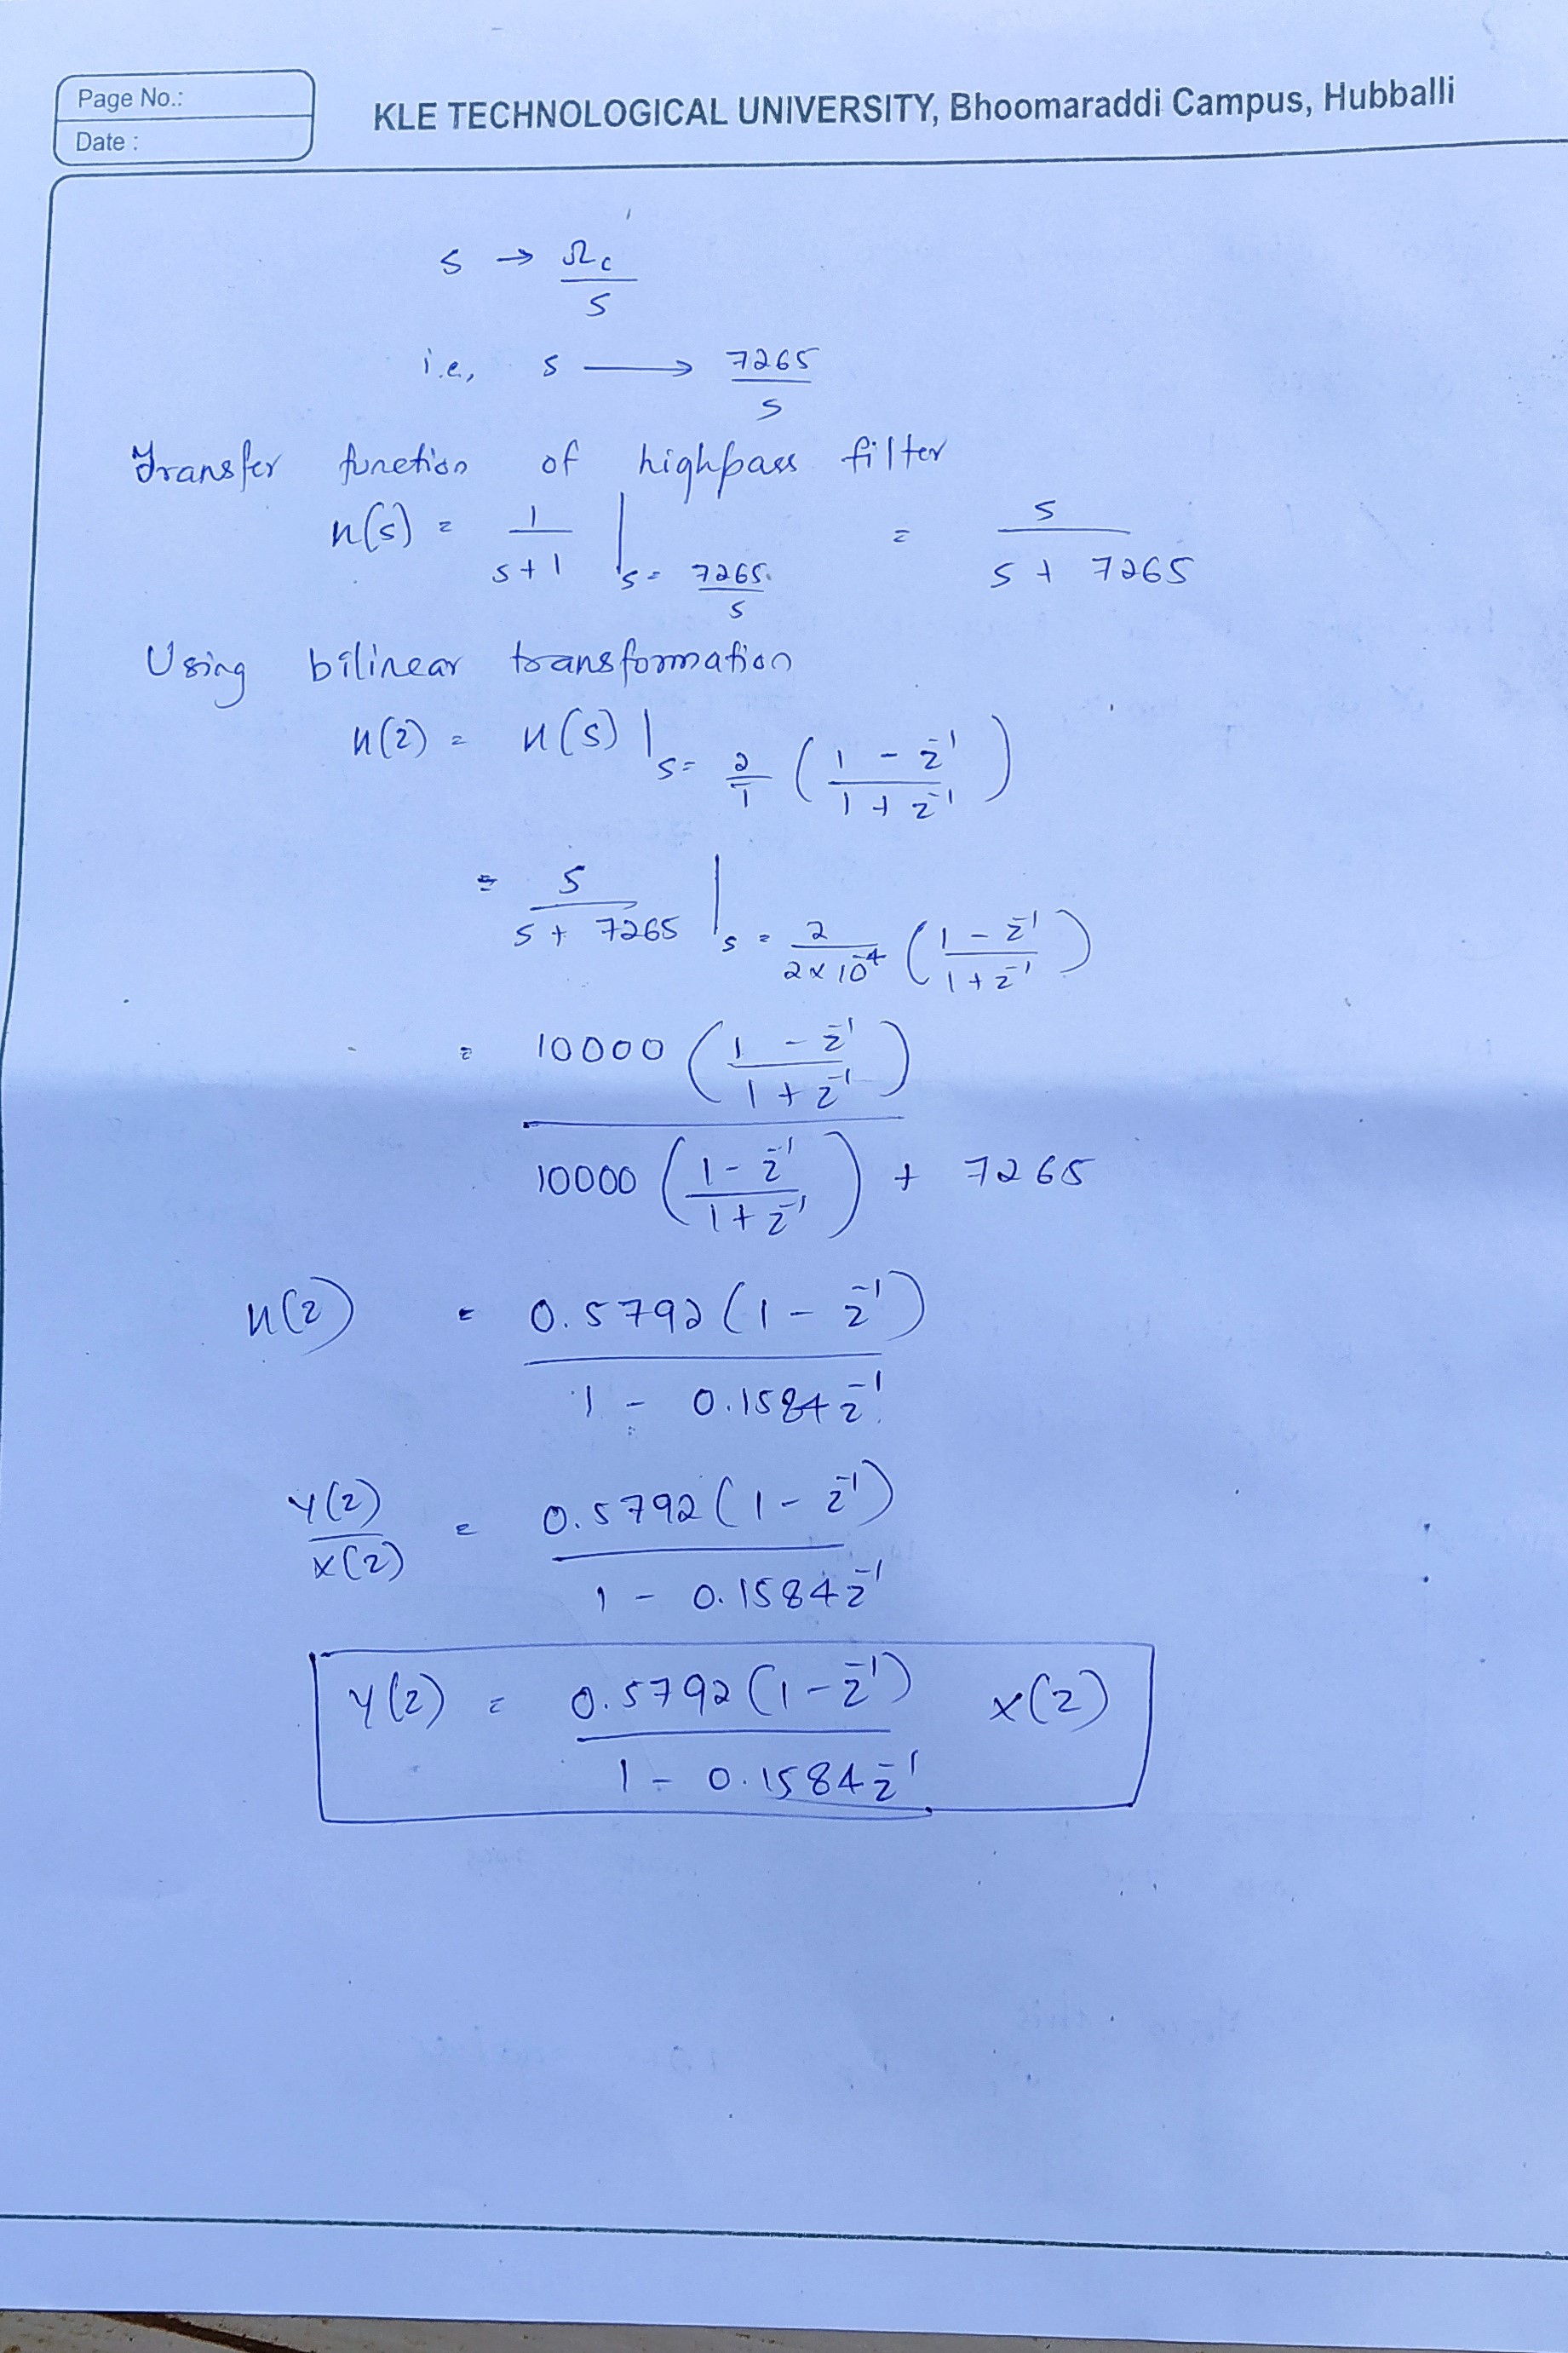 Page No.:
Date :
KLE TECHNOLOGICAL UNIVERSITY, Bhoomaraddi Campus, Hubballi
s → Ωc / s
i.e, s ⟶ 7265 / s
Transfer function of highpass filter
H(s) = 1 / (s + 1) | s = 7265 / s = s / (s + 7265)
Using bilinear transformation
H(z) = H(s) | s = 2/T ( (1 - z⁻¹) / (1 + z⁻¹) )
= s / (s + 7265) | s = 2 / (2 × 10⁻⁴) ( (1 - z⁻¹) / (1 + z⁻¹) )
= 10000 ( (1 - z⁻¹) / (1 + z⁻¹) )
/ 10000 ( (1 - z⁻¹) / (1 + z⁻¹) ) + 7265
H(z) = 0.5792 (1 - z⁻¹) / (1 - 0.1584 z⁻¹)
Y(z) / X(z) = 0.5792 (1 - z⁻¹) / (1 - 0.1584 z⁻¹)
Y(z) = 0.5792 (1 - z⁻¹) / (1 - 0.1584 z⁻¹) X(z)